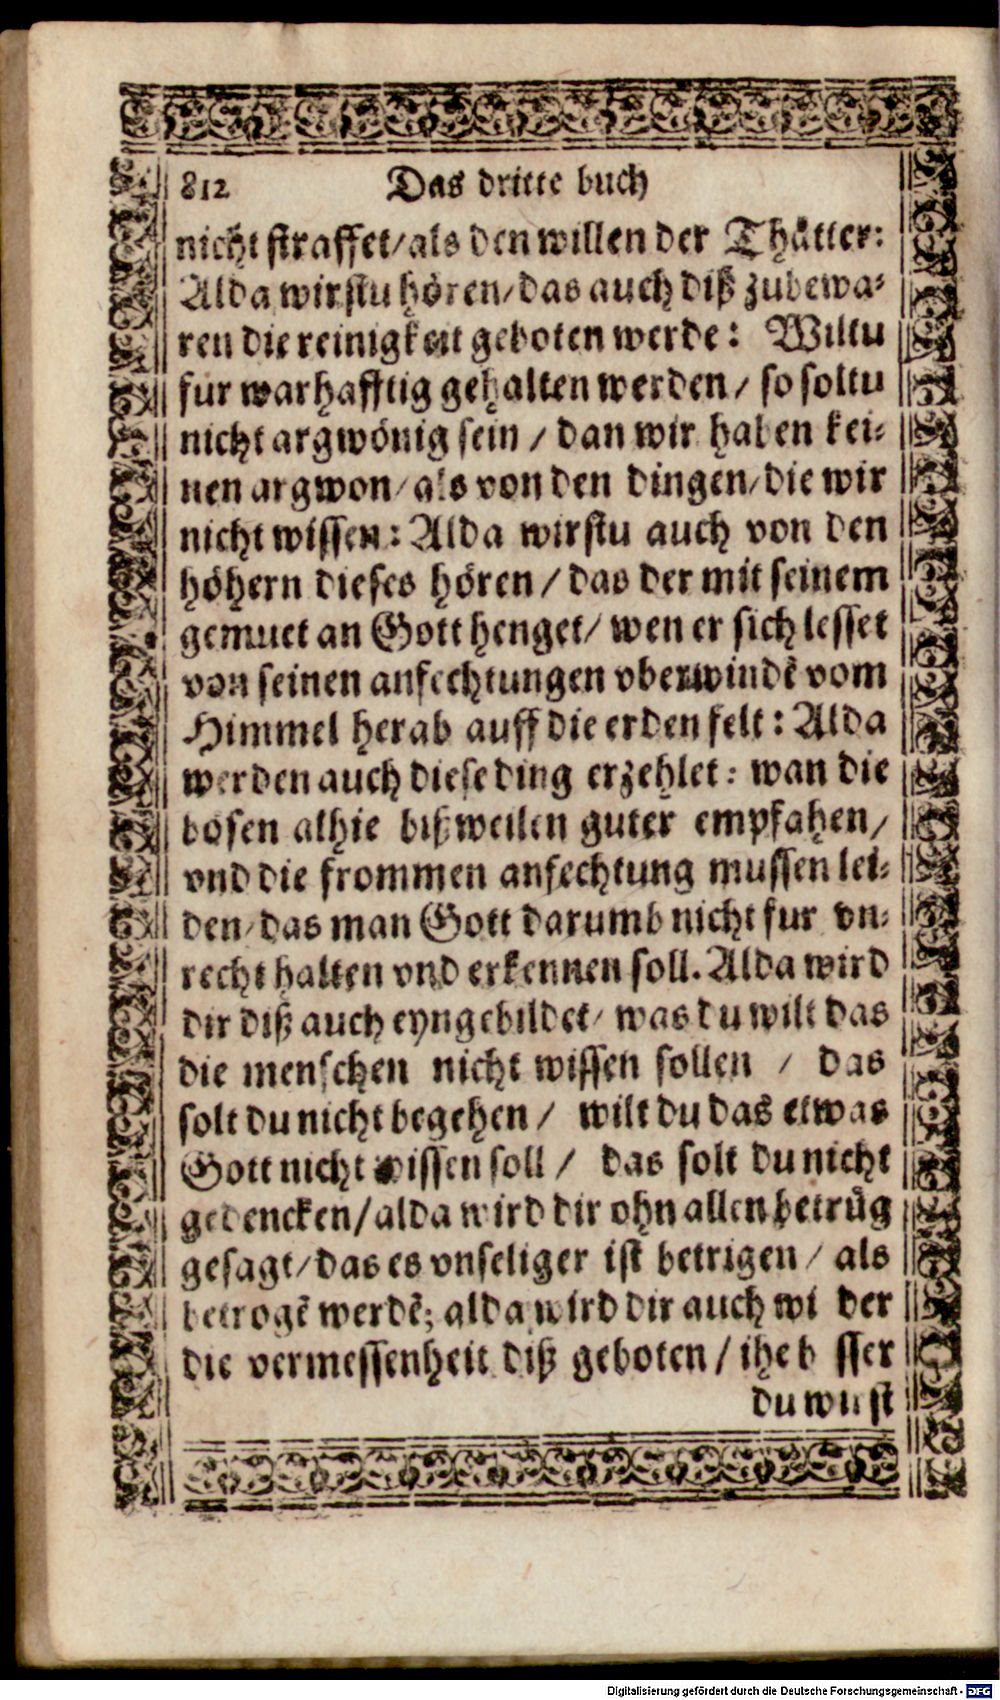 812 Das dritte buch
nicht straffet/als den willen der Thätter:
Alda wirstu hören/das auch diß zubewa-
ren die reinigkeit geboten werde: Wiltu
fur warhafftig gehalten werden/ so soltu
nicht argwönig sein / dan wir haben kei-
nen argwon/als von den dingen/die wir
nicht wissen: Alda wirstu auch von den
höhern dieses hören / das der mit seinem
gemuet an Gott henget/ wen er sich lesset
von seinen anfechtungen vberwindẽ vom
Himmel herab auff die erden felt: Alda
werden auch diese ding erzehlet: wan die
bosen alhie bißweilen guter empfahen/
vnd die frommen anfechtung mussen lei-
den/das man Gott darumb nicht fur vn-
recht halten vnd erkennen soll. Alda wird
dir diß auch eyngebildet/ was du wilt das
die menschen nicht wissen sollen / das
solt du nicht begehen/ wilt du das etwas
Gott nicht wissen soll / das solt du nicht
gedencken/alda wird dir ohn allen betrüg
gesagt/das es vnseliger ist betrigen / als
betrogẽ werdẽ; alda wird dir auch wi der
die vermessenheit diß geboten / ihe b sser
du wirst
Digitalisierung gefördert durch die Deutsche Forschungsgemeinschaft - DFG